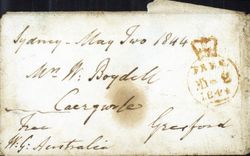 Sydney May Two 1844
Mrs W. Boydell
Caergwrle
Free Gresford
W. G. Australia
FREE
1844